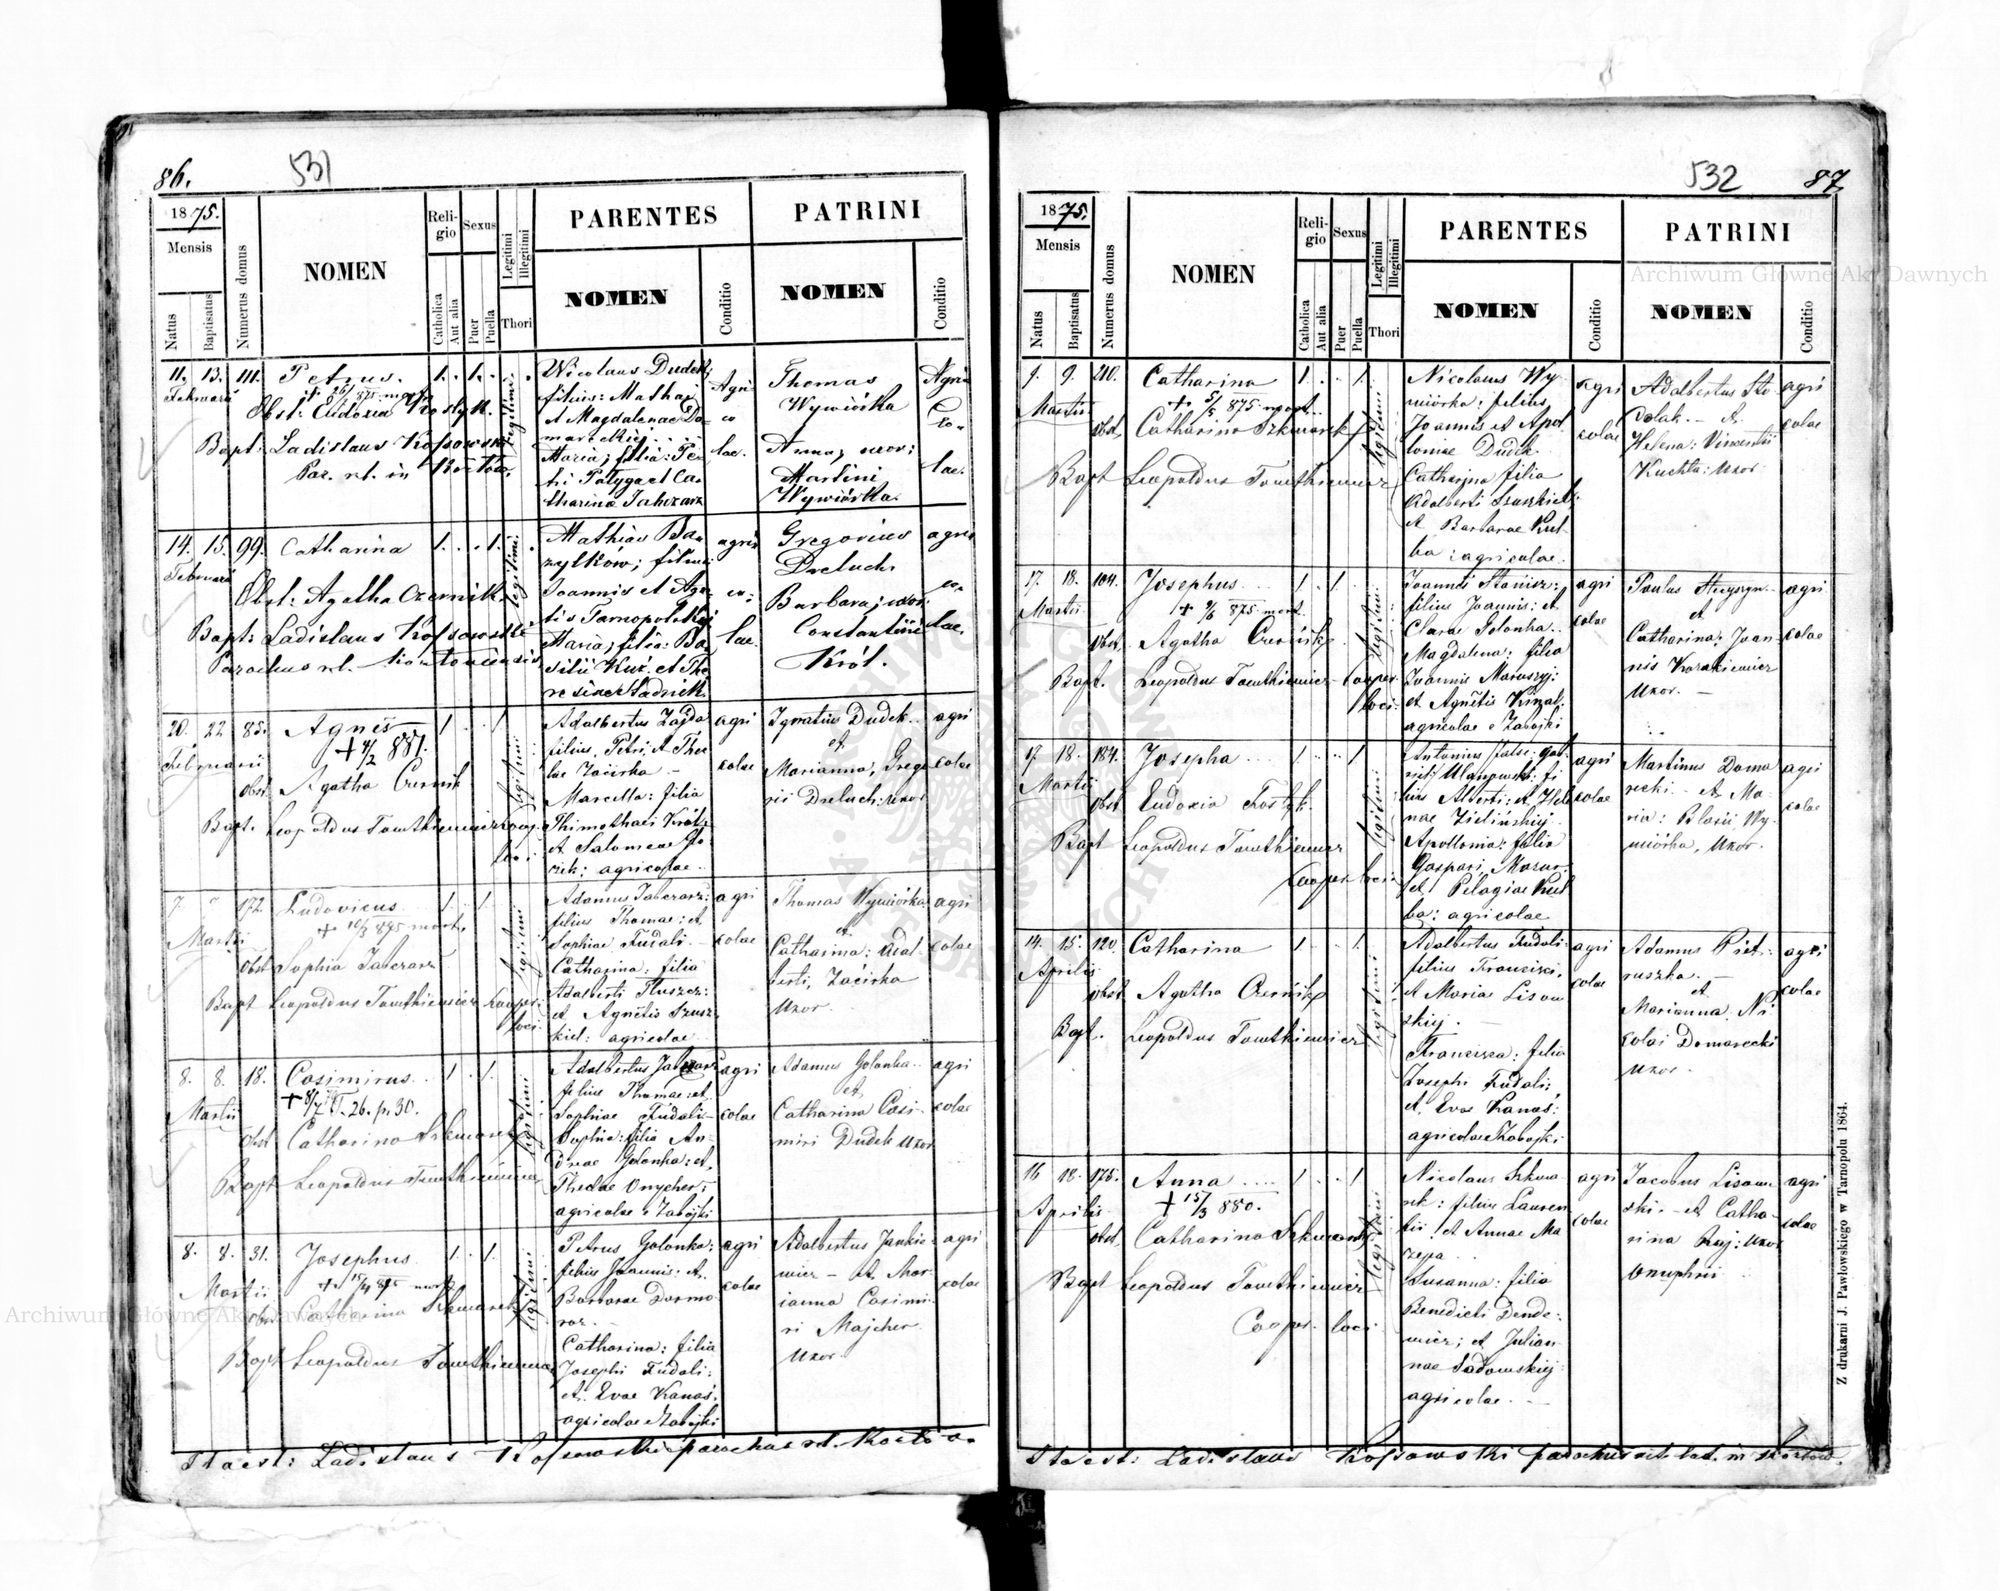 86.
531
1875.
Mensis
Natus
Baptisatus
Numerus domus
NOMEN
Religio
Catholica
Aut alia
Sexus
Puer
Puella
Legitimi
Illegitimi
Thori
PARENTES
NOMEN
Conditio
PATRINI
NOMEN
Conditio
11. 13. 111. Petrus.
Februarii
Obst: Eudoxia
Bapt: Ladislaus Kossowski
Par. r.l. in
legitimi
Nicolaus Dudek;
filius: Mathaei
et Magdalenae Do-
mareckie
Maria; filia: Pe-
tri Patyga et Ca-
tharinae
Agri-
co-
lae.
Thomas
Wywiórka
Anna; uxor:
Martini
Wywiórka.
Agri-
Co-
lae.
14. 15. 99. Catharina
Februarii
Obst: Agatha Czernik.
Bapt: Ladislaus Kossowski
Parochus r.l.
legitimi
Mathias Ba-
zylków; filius
Joannis et Agne-
tis Tarnopolskiej
Maria; filia: Ba-
silii Kuź. et The-
resiae Sadnik
agri-
co-
lae.
Gregorius
Dreluch
Barbara; uxor
Constantini
Król.
agri-
co-
lae.
20. 22. 85. Agnes
+ 4/2 881.
Februarii
Obst Agatha Czernik
Bapt. Leopoldus Tomtkiewicz Cooper.
loci
legitimi
Adalbertus Zajda
filius, Petri, et The-
clae Zaćirka
Marcella: filia
Thimothaei Król
et Salomeae
agricolae
agri
colae
Ignatius Dudek
et
Marianna, Grego-
rii Dreluch: uxor
agri
colae
7. 172. Ludovicus
+ 10/3 875 mort.
Martii
Obst Sophia Tabczarz
Bapt Leopoldus Tomtkiewicz Cooper.
loci
legitimi
Adamus Tabczarz:
filius Thomae: et
Sophiae Fudali.
Catharina: filia
Adalberti Tłuszcz:
et Agnetis Szusz-
kiel: agricolae
agri
colae
Thomas Wywiórka
et
Catharina: Adal-
berti, Zaćirka
uxor
agri
colae
8. 8. 18. Casimirus
+ 8/7 T. 26. p. 30.
Martii
Obst Catharina Szkwarek
Bapt Leopoldus Tomtkiewicz
legitimi
Adalbertus Tabczarz
filius Thomae: et
Sophiae Fudali
Sophia: filia An-
dreae Golonka: et
Theclae Onycher,
agricolae e Zabojki
agri
colae
Adamus Golonka
et
Catharina Casi-
miri Dudek uxor
agri
colae
8. 8. 31. Josephus
+ 15/4 875 mort
Martii
Obst Catharina Szkwarek
Bapt Leopoldus Tomtkiewicz
legitimi
Petrus Golonka:
filius Joannis: et
Barbarae Darmo-
roz.
Catharina: filia
Josephi Fudali:
et Evae Kanas:
agricolae e Zabojki
agri
colae
Adalbertus Jankie-
wicz et Mar-
ianna Casimi-
ri Majcher
uxor
agri
colae
Ita est: Ladislaus Kossowski parochus r.l.
532
87.
1875.
Mensis
Natus
Baptisatus
Numerus domus
NOMEN
Religio
Catholica
Aut alia
Sexus
Puer
Puella
Legitimi
Illegitimi
Thori
PARENTES
NOMEN
Conditio
PATRINI
NOMEN
Conditio
9. 9. 210. Catharina
+ 5/5 875 mort.
Martii
Obst. Catharina Szkwarek
Bapt Leopoldus Tomtkiewicz
legitimi
Nicolaus Wy-
wiórka: filius
Joannis et Apol-
loniae Dudek
Catharina filia
Adalberti Szuszkiel:
et Barbarae Kul-
ba: agricolae.
agri
colae
Adalbertus Sto-
dolak. et
Helena: Vincentii
Kuchta: uxor
agri
colae
17. 18. 104. Josephus
+ 9/6 875 mort.
Martii
Obst. Agatha Czernik
Bapt. Leopoldus Tomtkiewicz Cooper.
loci
legitimi
Joannes Stanisz:
filius Joannis: et
Clarae Golonka.
Magdalena: filia
Joannis Maruszyj:
et Agnetis
agricolae e Zabojki
agri
colae
Paulus
et
Catharina: Joan-
nis
uxor.
agri
colae
17. 18. 184. Josepha
Martii
Obst Eudoxia
Bapt Leopoldus Tomtkiewicz
Cooper loci
legitimi
Antonius false: Gab-
riel; Ulanowski: fi-
lius Alberti: et Hele-
nae Zielińskiej
Apollonia: filia
Gaspari, Mazur
et Pelagiae Kul-
ba: agricolae
agri
colae
Martinus Doma-
recki et Ma-
ria: Blasii, Wy-
wiórka, uxor.
agri
colae
14. 15. 120. Catharina
Aprilis
Obst Agatha Czernik
Bapt. Leopoldus Tomtkiewicz
legitimi
Adalbertus Fudali:
filius Francisci:
et Maria Lisow-
skiej.
Francisca: filia
Josephi Fudali:
et Evae Kanas:
agricolae e Zabojki
agri
colae
Adamus Piet-
ruszka.
et
Marianna Ni-
colai Domarecki
uxor
agri
colae
16 18. 175. Anna
+ 15/3 880.
Aprilis
Obst Catharina Szkwarek
Bapt Leopoldus Tomtkiewicz
Cooper. loci
legitimi
Nicolaus Szkwa-
rek: filius Lauren-
tii et Annae Ma-
zepa
Susanna: filia
Benedicti Dende-
wicz; et Julian-
nae Sadowskiej
agricolae
agri
colae
Jacobus Lisow-
ski. et Catha-
rina Kuj: uxor
Onuphrii
agri
colae
Ita est: Ladislaus Kossowski parochus rit. lat. in
Z drukarni J. Pawłowskiego w Tarnopolu 1864.
Archiwum Główne Akt Dawnych
Archiwum Główne Akt Dawnych